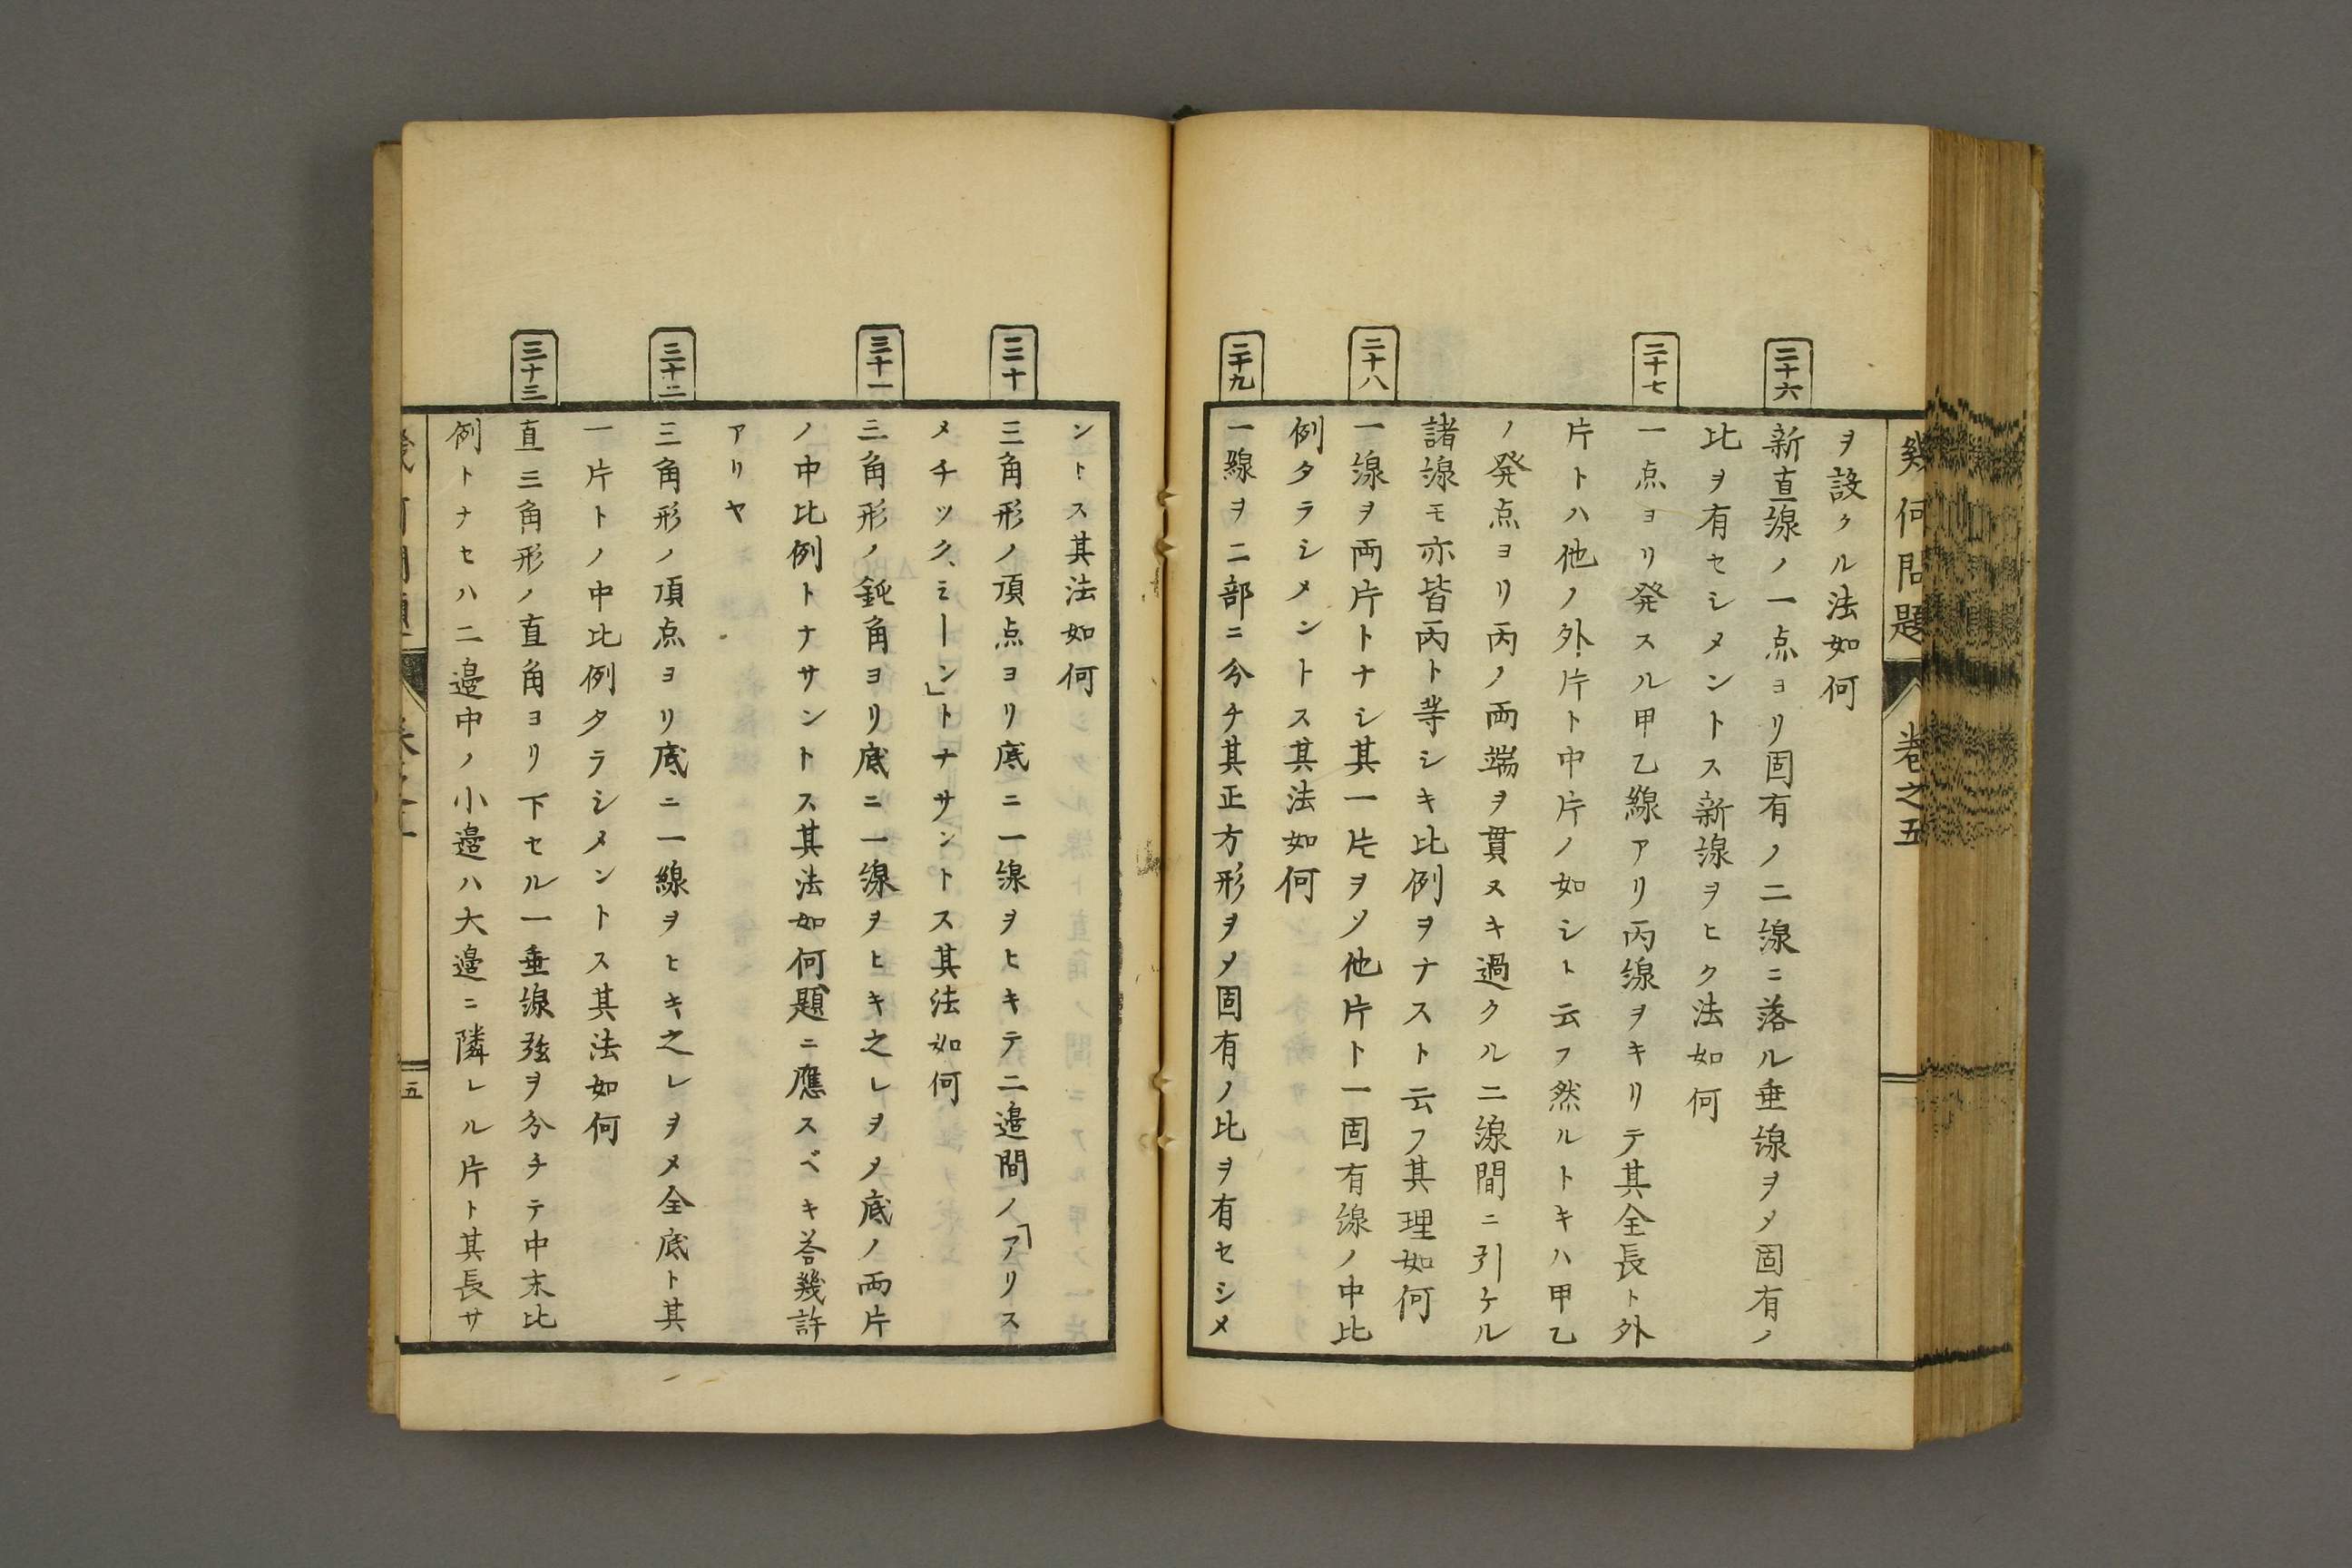 幾何問題
巻之五
ヲ設クル法如何
二十六
新直線ノ一点ヨリ固有ノ二線ニ落ル垂線ヲメ固有ノ
比ヲ有セシメントス新線ヲヒク法如何
二十七
一点ヨリ発スル甲乙線アリ丙線ヲキリテ其全長ト外
片トハ他ノ外片ト中片ノ如シト云フ然ルトキハ甲乙
ノ発点ヨリ丙ノ両端ヲ貫ヌキ過クル二線間ニ引ケル
諸線モ亦皆丙ト等シキ比例ヲナスト云フ其理如何
二十八
一線ヲ両片トナシ其一片ヲソ他片ト一固有線ノ中比
例タラシメントス其法如何
二十九
一線ヲ二部ニ分チ其正方形ヲメ固有ノ比ヲ有セシメ
ントス其法如何
三十
三角形ノ頂点ヨリ底ニ一線ヲヒキテ二邉間ノ「アリス
メチツク、ミーン」トナサントス其法如何
三十一
三角形ノ鈍角ヨリ底ニ一線ヲヒキ之レヲメ底ノ両片
ノ中比例トナサントス其法如何題ニ應スベキ答幾許
アリヤ
三十二
三角形ノ頂点ヨリ底ニ一線ヲヒキ之レヲメ全底ト其
一片トノ中比例タラシメントス其法如何
三十三
直三角形ノ直角ヨリ下セル一垂線弦ヲ分チテ中末比
例トナセハ二邉中ノ小邉ハ大邉ニ隣レル片ト其長サ
五